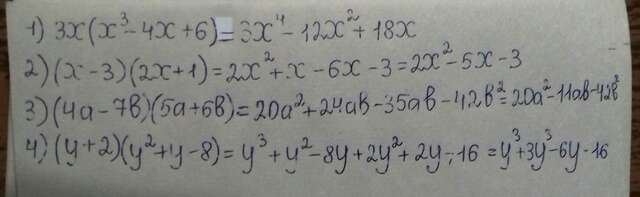 1) 3x(x³-4x+6)=3x⁴-12x²+18x
2) (x-3)(2x+1)=2x²+x-6x-3=2x²-5x-3
3) (4a-7b)(5a+6b)=20a²+24ab-35ab-42b²=20a²-11ab-42b²
4) (y+2)(y²+y-8)=y³+y²-8y+2y²+2y-16=y³+3y³-6y-16